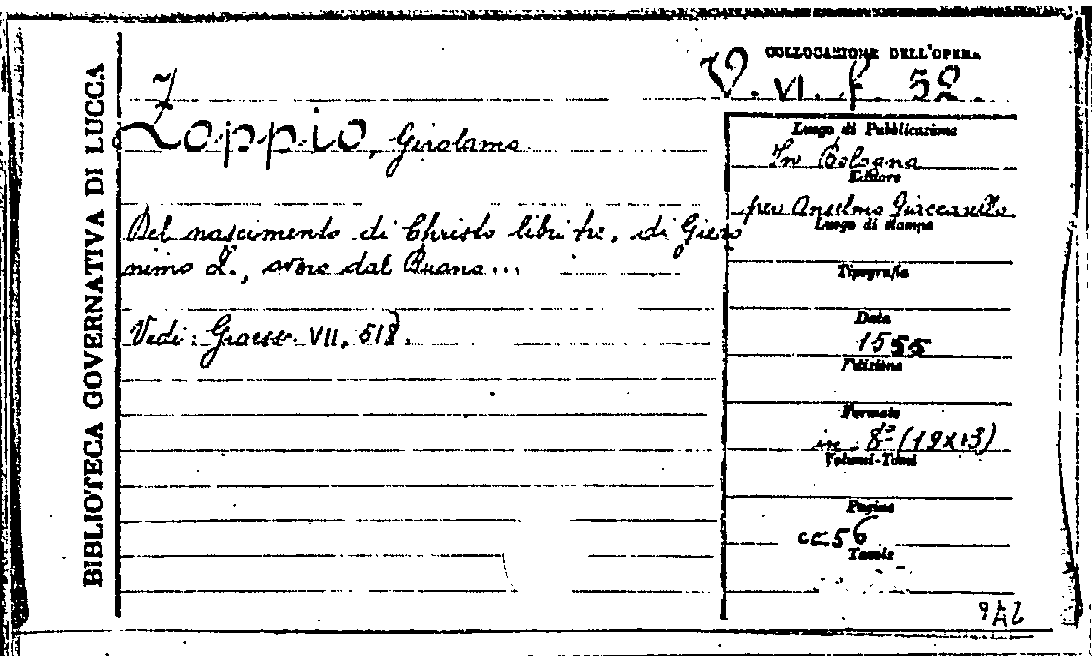 BIBLIOTECA GOVERNATIVA DI LUCCA
COLLOCAZIONE DELL'OPERA
V. VI. f. 52.
Z
Zoppio, Girolamo
Del nascimento di Christo libri tre, di Giero
nimo Z., avore dal Buano...
Vedi: Graesse VII, 518.
Luogo di Pubblicazione
In Bologna
Editore
per Anselmo Giaccarello
Luogo di stampa
Tipografia
Data
1555
Edizione
Formato
in 8º (19x13)
Volumi-Tomi
Pagine
cc 56
Tavole